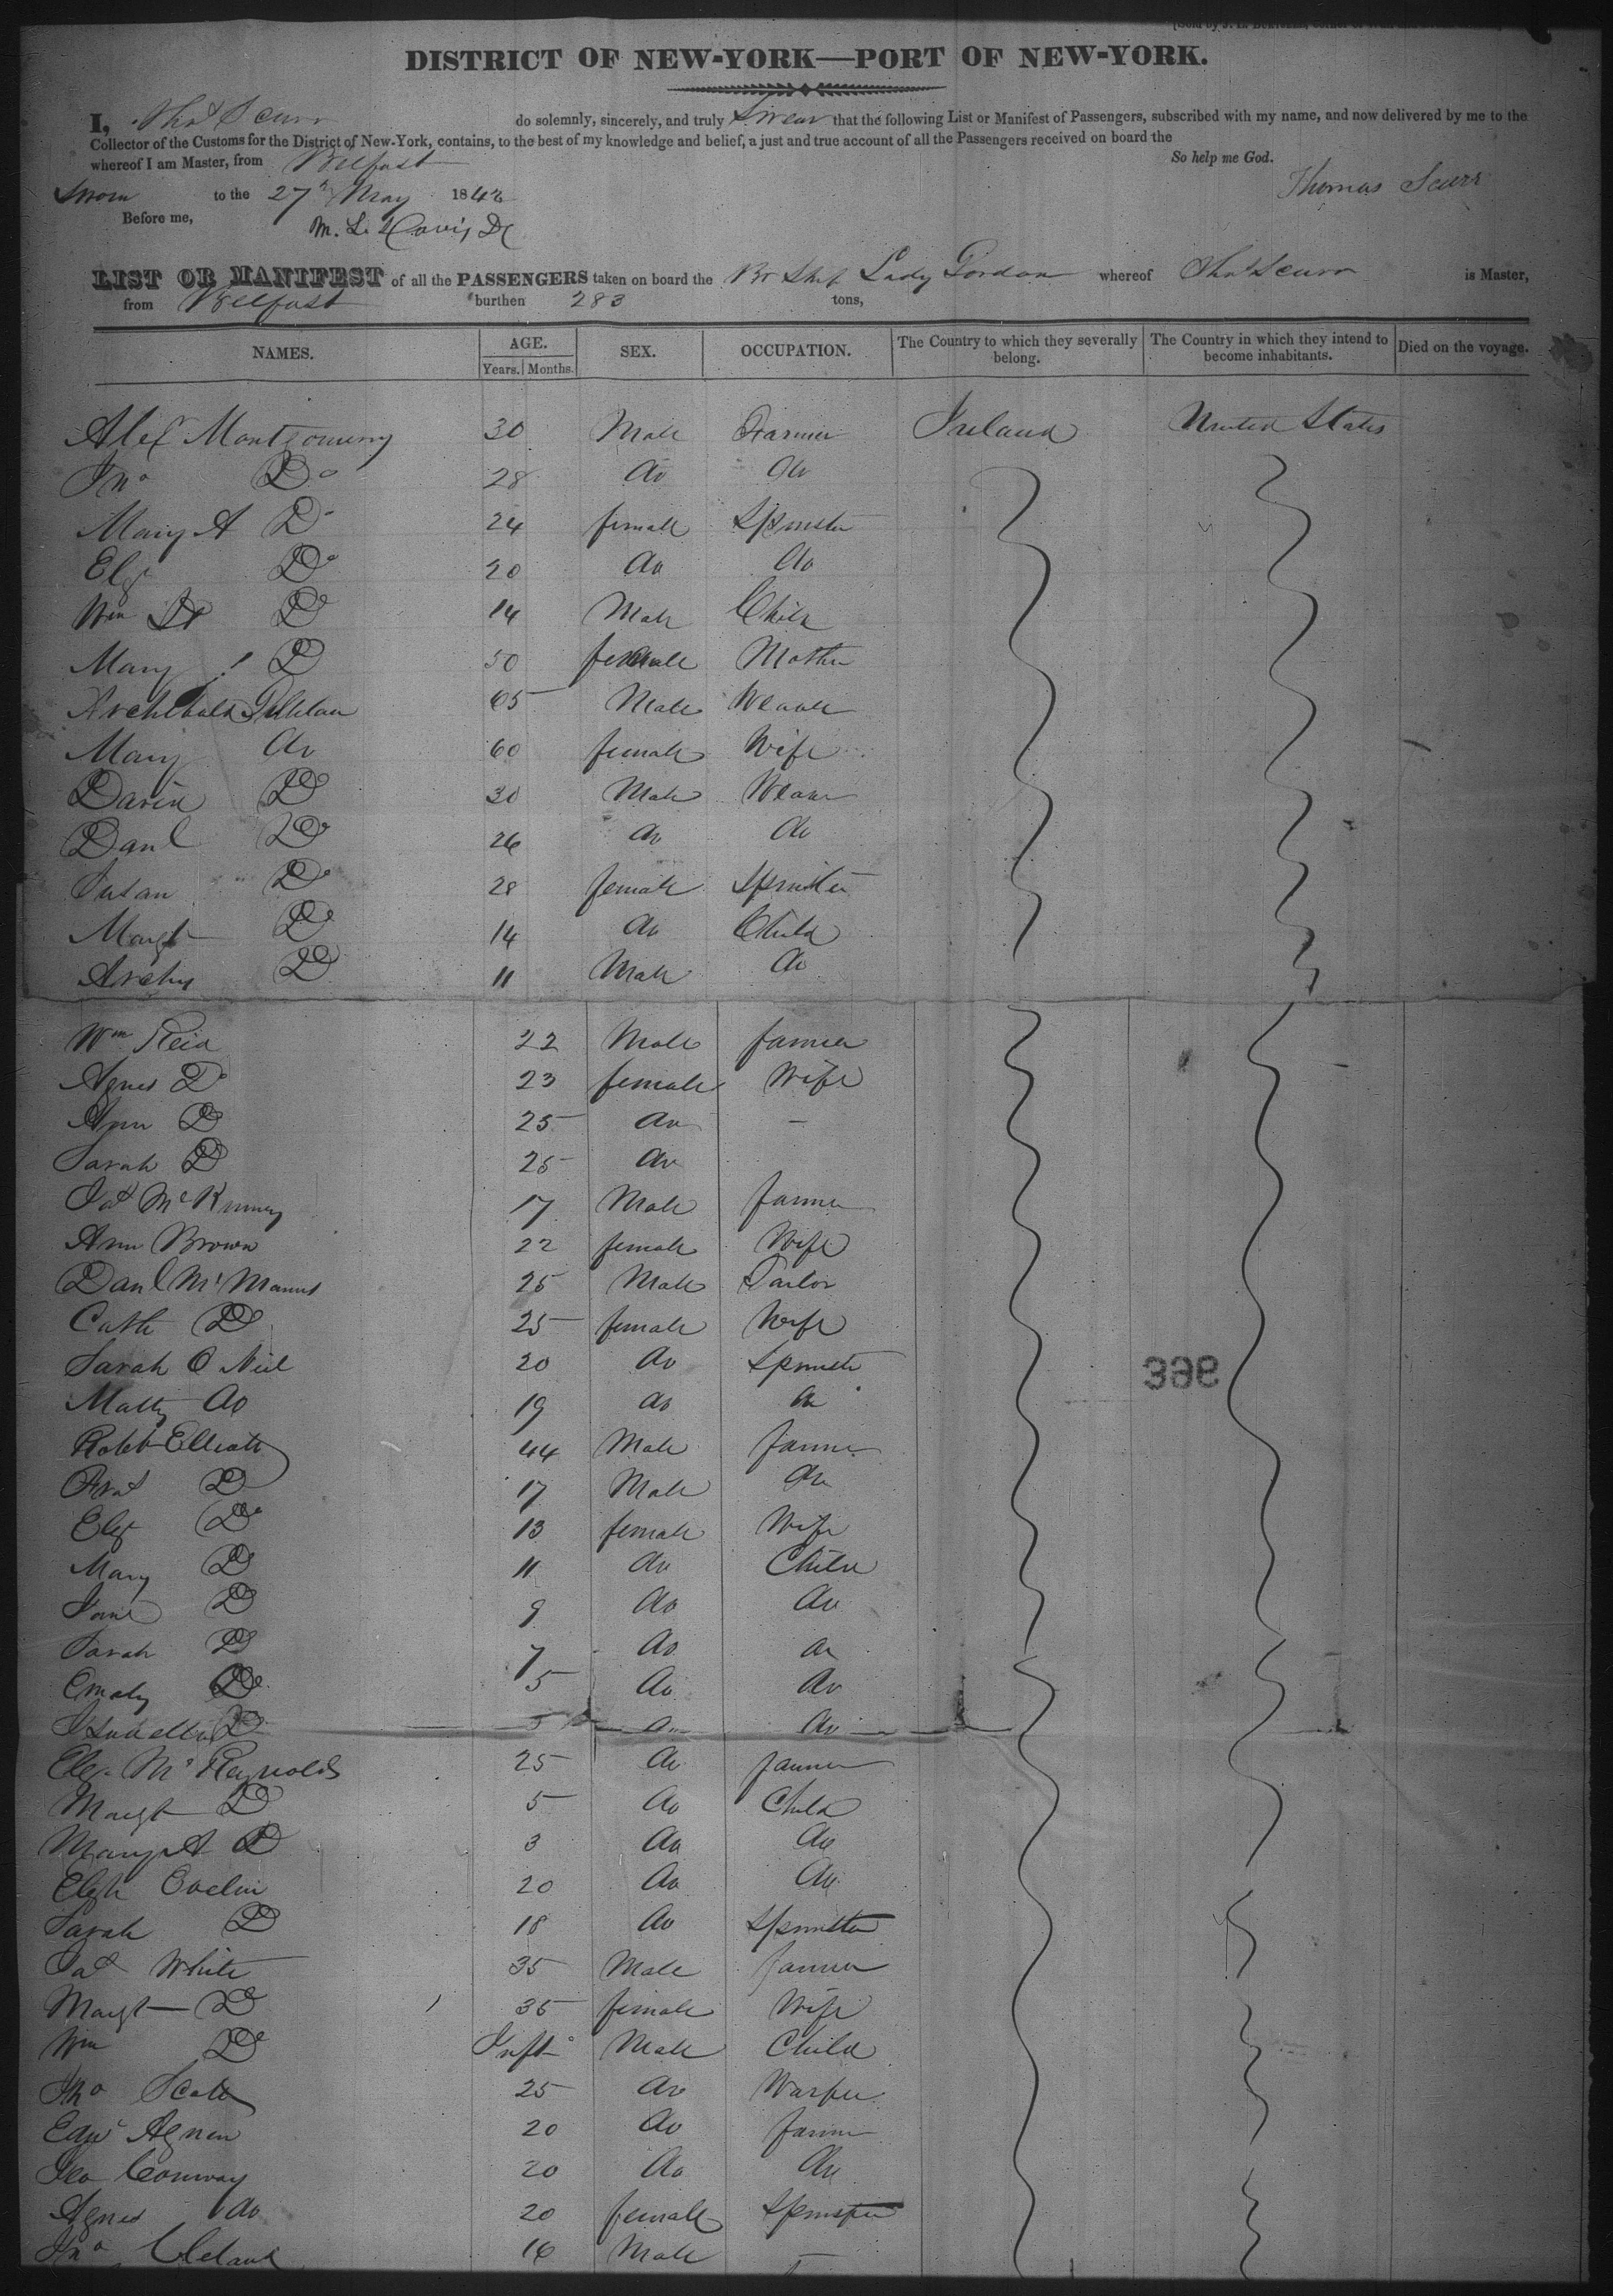 DISTRICT OF NEW-YORK—PORT OF NEW-YORK.
I, Thos Scurr do solemnly, sincerely, and truly Swear that the following List or Manifest of Passengers, subscribed with my name, and now delivered by me to the
Collector of the Customs for the District of New-York, contains, to the best of my knowledge and belief, a just and true account of all the Passengers received on board the
whereof I am Master, from Belfast So help me God.
Sworn to the 27th May 1842 Thomas Scurr
Before me, M. L. Davis
LIST OR MANIFEST of all the PASSENGERS taken on board the Br Ship Lady Gordon whereof Thos Scurr is Master,
from Belfast burthen 283 tons,
NAMES. AGE. SEX. OCCUPATION. The Country to which they severally belong. The Country in which they intend to become inhabitants. Died on the voyage.
Years. Months.
Alex Montgomery 30 Male Farmer Ireland United States
Jno Do 28 do do
Mary A Do 24 female Spinster
Eliz Do 20 do do
Wm Do 14 Male Child
Mary Do 50 female Mother
Archibald 65 Male Weaver
Mary do 60 female Wife
David Do 30 Male Weaver
Danl Do 26 do do
Susan Do 28 female Spinster
Margt Do 14 do Child
Archy Do 11 Male do
Wm Reid 22 Male farmer
Agnes Do 23 female Wife
Ann Do 25 do -
Sarah Do 25 do
Jas McKinney 17 Male farmer
Ann Brown 22 female Wife
Danl McManus 25 Male Tailor
Cath Do 25 female Wife
Sarah O Neil 20 do Spinster
Matty do 19 do do
Robt Elliott 44 Male farmer
Do 17 Male do
Eliz Do 13 female Wife
Mary Do 11 do Child
Jane Do 9 do do
Sarah Do 7 do do
Emaly Do 5 do do
Isabella Do 3 do do
Eliz McReynolds 25 do farmer
Margt Do 5 do Child
Mary A Do 3 do do
Elizh 20 do do
Sarah Do 18 do Spinster
Jas White 35 Male farmer
Margt Do 35 female Wife
Wm Do Inft Male Child
Jno Scott 25 do
Edwd Agnew 20 do farmer
Geo Conway 20 do do
Agnes do 20 female Spinster
Jno Cleland 16 Male